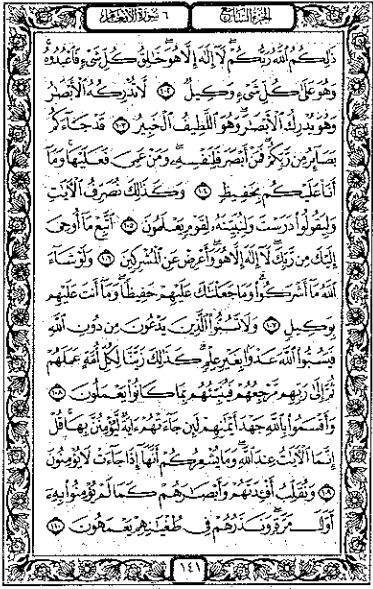 الجزء السابع ٦ سورة الأنعام
ذَٰلِكُمُ ٱللَّهُ رَبُّكُمْ لَآ إِلَٰهَ إِلَّا هُوَ خَٰلِقُ كُلِّ شَىْءٍ فَٱعْبُدُوهُ
وَهُوَ عَلَىٰ كُلِّ شَىْءٍ وَكِيلٌ ١٠٢ لَّا تُدْرِكُهُ ٱلْأَبْصَٰرُ
وَهُوَ يُدْرِكُ ٱلْأَبْصَٰرَ وَهُوَ ٱللَّطِيفُ ٱلْخَبِيرُ ١٠٣ قَدْ جَآءَكُم
بَصَآئِرُ مِن رَّبِّكُمْ فَمَنْ أَبْصَرَ فَلِنَفْسِهِۦ وَمَنْ عَمِىَ فَعَلَيْهَا وَمَآ
أَنَا۠ عَلَيْكُم بِحَفِيظٍ ١٠٤ وَكَذَٰلِكَ نُصَرِّفُ ٱلْءَايَٰتِ
وَلِيَقُولُوا۟ دَرَسْتَ وَلِنُبَيِّنَهُۥ لِقَوْمٍ يَعْلَمُونَ ١٠٥ ٱتَّبِعْ مَآ أُوحِىَ
إِلَيْكَ مِن رَّبِّكَ لَآ إِلَٰهَ إِلَّا هُوَ وَأَعْرِضْ عَنِ ٱلْمُشْرِكِينَ ١٠٦ وَلَوْ شَآءَ
ٱللَّهُ مَآ أَشْرَكُوا۟ وَمَا جَعَلْنَٰكَ عَلَيْهِمْ حَفِيظًا وَمَآ أَنتَ عَلَيْهِم
بِوَكِيلٍ ١٠٧ وَلَا تَسُبُّوا۟ ٱلَّذِينَ يَدْعُونَ مِن دُونِ ٱللَّهِ
فَيَسُبُّوا۟ ٱللَّهَ عَدْوًۢا بِغَيْرِ عِلْمٍ كَذَٰلِكَ زَيَّنَّا لِكُلِّ أُمَّةٍ عَمَلَهُمْ
ثُمَّ إِلَىٰ رَبِّهِم مَّرْجِعُهُمْ فَيُنَبِّئُهُم بِمَا كَانُوا۟ يَعْمَلُونَ ١٠٨
وَأَقْسَمُوا۟ بِٱللَّهِ جَهْدَ أَيْمَٰنِهِمْ لَئِن جَآءَتْهُمْ ءَايَةٌ لَّيُؤْمِنُنَّ بِهَا قُلْ
إِنَّمَا ٱلْءَايَٰتُ عِندَ ٱللَّهِ وَمَا يُشْعِرُكُمْ أَنَّهَآ إِذَا جَآءَتْ لَا يُؤْمِنُونَ
١٠٩ وَنُقَلِّبُ أَفْـِٔدَتَهُمْ وَأَبْصَٰرَهُمْ كَمَا لَمْ يُؤْمِنُوا۟ بِهِۦٓ
أَوَّلَ مَرَّةٍ وَنَذَرُهُمْ فِى طُغْيَٰنِهِمْ يَعْمَهُونَ ١١٠
١٤١